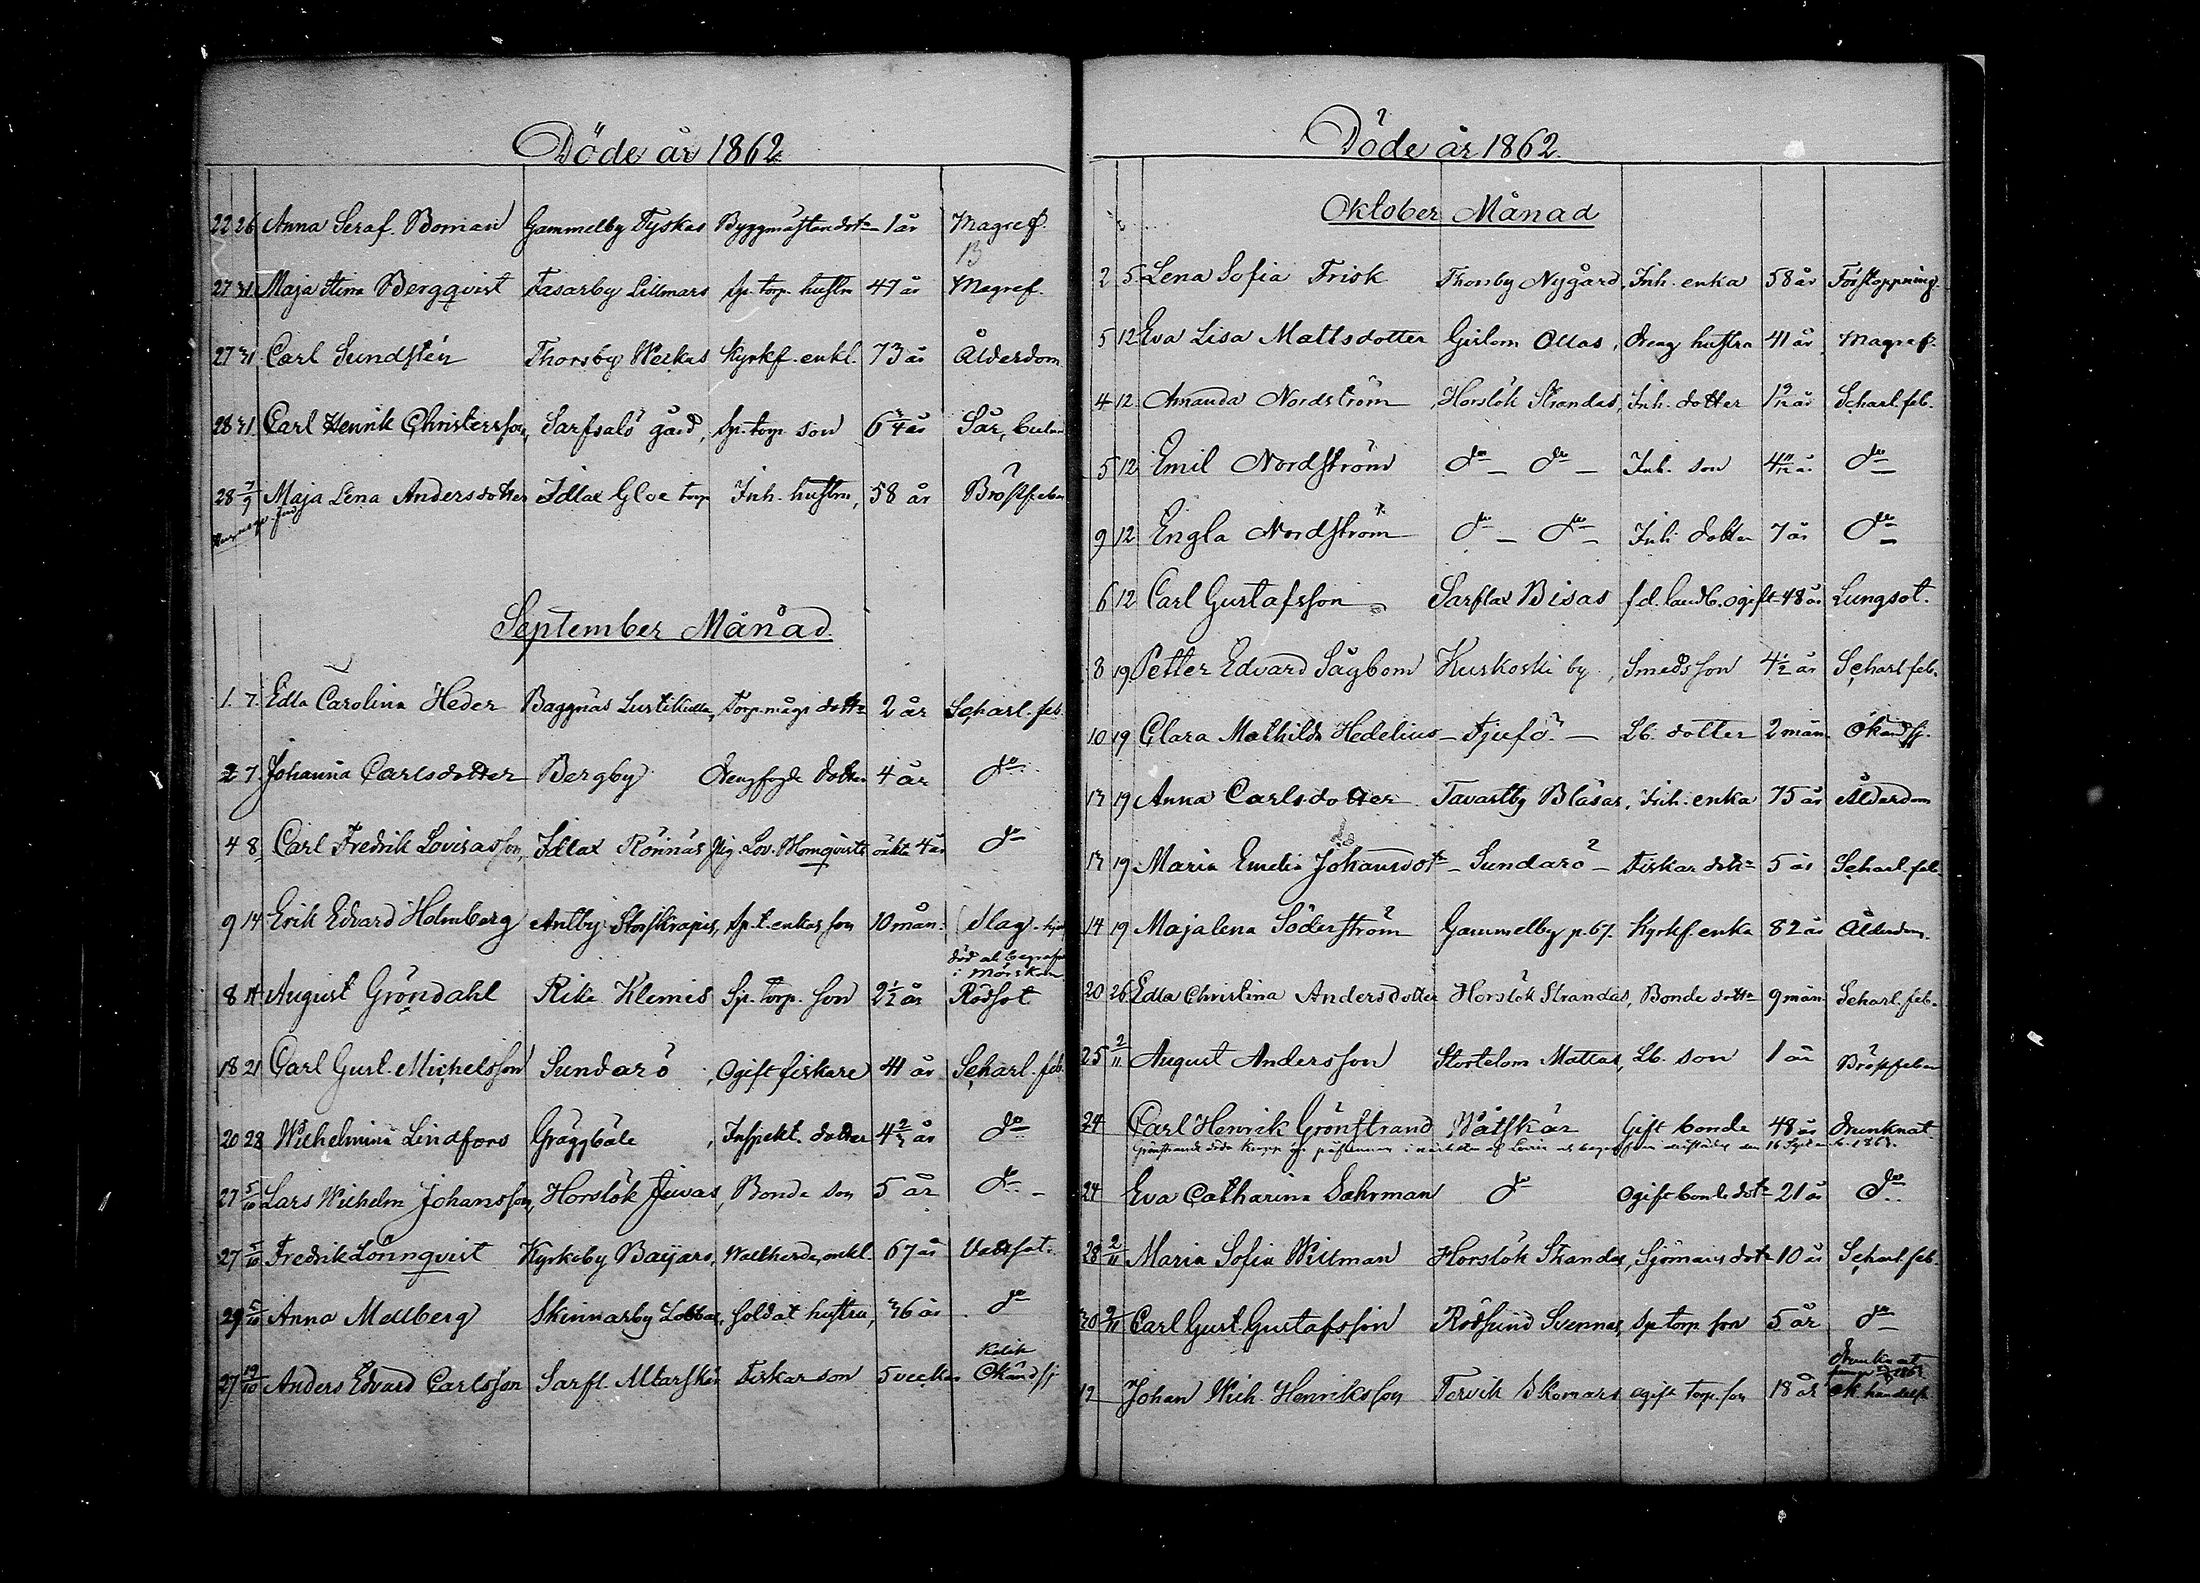 Döde år 1862
22 26 Anna Seraf. Boman Gammelby Tyskas Byggmästar dotr 1 år Magref.
27 31 Maja Stina Bergqvist Fasarby Lillmars Sp. torp. hustru 47 år Magref.
27 31 Carl Sundstén Thorsby Weckas Kyrkf. enkl. 73 år Ålderdom
28 31 Carl Henrik Christersson, Sarfsalö gård, Sp. torp. son 6 3/4 år Sår,
28 7/9 Maja Lena Andersdotter Idlax Gloe torp Inh. hustru, 58 år Bröstfeber
September Månad
1. 7. Edla Carolina Heder Baggnäs Lustikulla, Torp. mågs dottr 2 år Scharl. feb.
2 7. Johanna Carlsdotter Bergby Drengfogde dotter 4 år do
4 8. Carl Fredrik Lovisasson, Idlax Rönnäs Pig. Lov. Blomqvists oäkta 4 år do
9 14 Erik Edvard Holmberg Antby Storskrapis, Sp. t. enkas son 10 mån. Slag.
död och begrafven
i Mörskom
8 14 August Gröndahl Rike Klemis Sp. torp. son 2 1/2 år Rödsot
18 21 Carl Gust. Michelsson Sundarö, Ogift fiskare 41 år Scharl. feb.
20 28 Wilhelmina Lindfors Gräggböle, Inspekt. dotter 4 2/3 år do
27 5/10 Lars Wilhelm Johansson, Horslök Juvas, Bonde son 5 år do
27 5/10 Fredrik Lönnqvist Kyrkoby Baijars, Wallherde, enkl. 67 år Vattsot.
29 5/10 Anna Mellberg Skinnarby Lobbas, soldat hustru, 36 år do
Kolik
27 19/10 Anders Edvard Carlsson Sarfl. Altarskär Fiskar son 5 veckor Okänd sj.
Döde år 1862.
Oktober Månad
2 5. Lena Sofia Frisk Thorsby Nygård, Inh. enka 58 år Förstoppning.
5 12 Eva Lisa Mattsdotter Gislom Ollas, Dreng hustru 41 år Magref.
4 12 Amanda Nordström Horslök Strandas, Inh. dotter 1 9/12 år Scharl. feb.
5 12 Emil Nordström do – do – Inh. son 4 11/12 år do
9 12 Engla Nordström do – do – Inh. dotter 7 år do
6 12 Carl Gustafsson Sarflax Bisas f.d. landb. ogift 48 år Lungsot.
8 19 Petter Edvard Sågbom Kuskoski by, Smeds son 4 1/2 år Scharl. feb.
10 19 Clara Mathilda Hedelius – Tjufö – Lb. dotter 2 mån. Okänd sj.
13 19 Anna Carlsdotter Tavastby Blåsas, Inh. enka 75 år Ålderdom
13 19 Maria Emelia Johansdotr – Sundarö – Fiskar dottr 5 år Scharl. feb.
14 19 Majalena Söderström Gammelby p. by. Kyrkf. enka 82 år Ålderdom.
20 26 Edla Christina Andersdotter Horslök Strandas, Bonde dottr 9 mån. Scharl. feb.
25 2/11 August Andersson Stortelom Mattas, Lb. son 1 år Bröstfeber
24 Carl Henrik Grönstrand Våtskär Gift bonde 48 år Drunknat.
Grönstrands döda kropp
24 Eva Catharina Sahrman do Ogift bonde dotr 21 år do
28 2/11 Maria Sofia Willman Horslök Strandas, Sjömans dotr 10 år Scharl. feb.
30 9/11 Carl Gust. Gustafsson Rödsund Svennas, Sp. torp. son 5 år do
Drunknat
12 Johan Wilh. Henriksson Tervik Skomars ogift torp. son 18 år